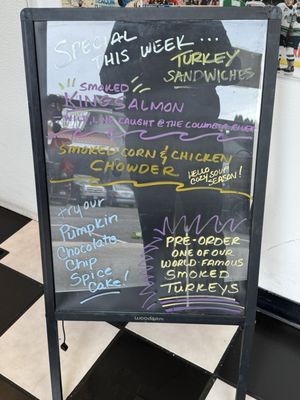 Special
THIS WEEK ...
TURKEY
SANDWICHES
SMOKED
KING SALMON
LINE CAUGHT @ THE COLUMBIA RIVER
SMOKED CORN & CHICKEN
CHOWDER
HELLO
COZY SOUP
SEASON!
try our
Pumpkin
Chocolate
Chip
Spice
Cake!
PRE-ORDER
ONE OF OUR
WORLD-FAMOUS
SMOKED
TURKEYS
woodsam